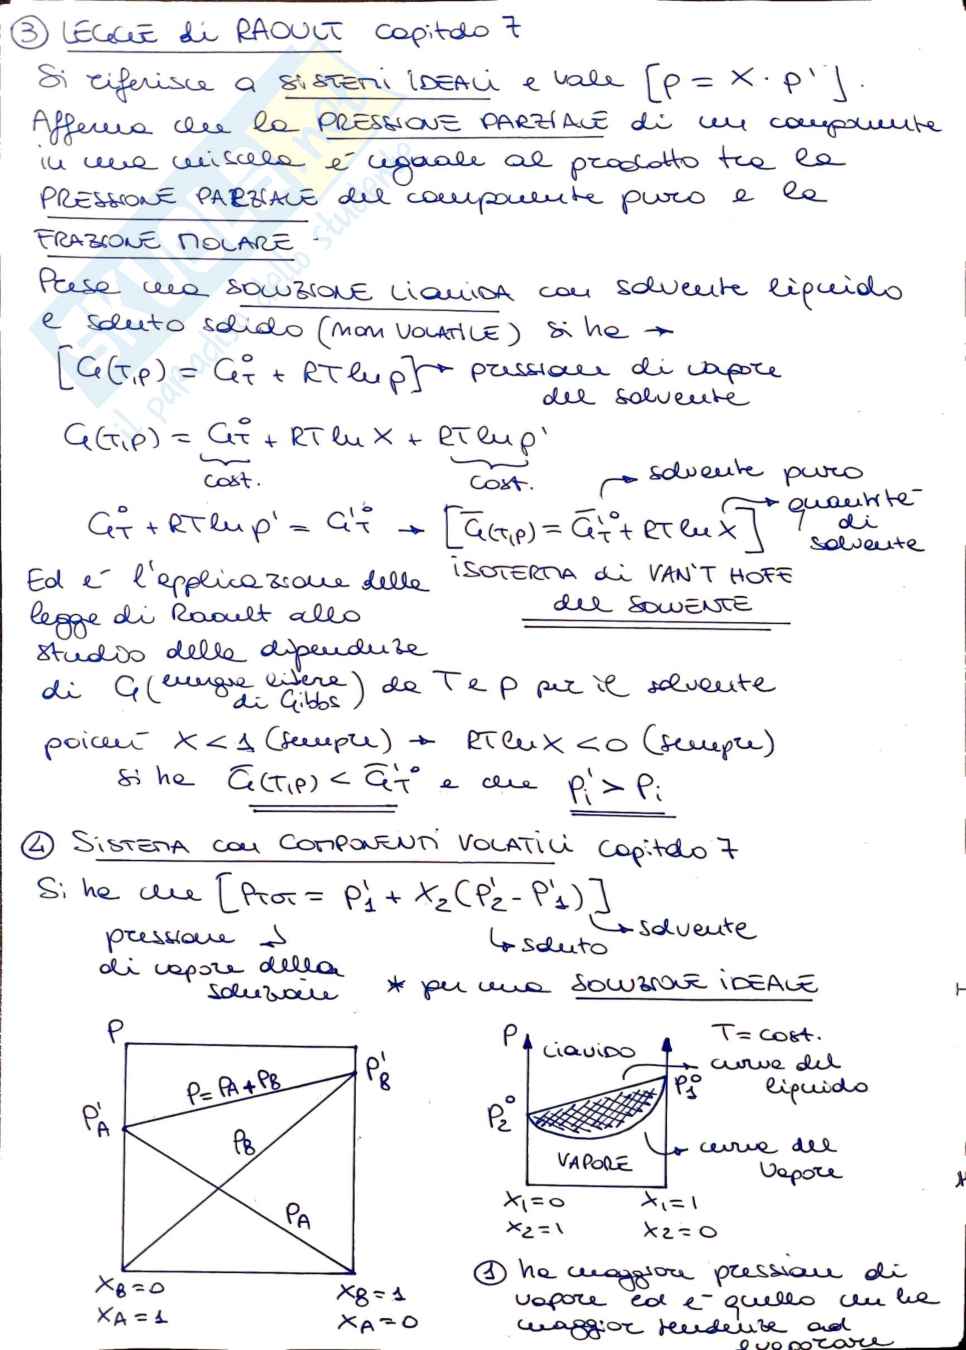 ③ LEGGE di RAOULT capitolo 7
Si riferisce a SISTEMI IDEALI e vale [p = X · p'].
Afferma che la PRESSIONE PARZIALE di un componente
in una miscela è uguale al prodotto tra la
PRESSIONE PARZIALE del componente puro e la
FRAZIONE MOLARE.
Presa una SOLUZIONE LIQUIDA con solvente liquido
e soluto solido (NON VOLATILE) si ha →
[G(T,p) = G°T + RT ln p] → pressione di vapore
del solvente
G(T,p) = G°T + RT ln X + RT ln p'
cost. cost.
→ solvente puro
G°T + RT ln p' = G'°T → [G̅(T,p) = G̅'°T + RT ln X] → quantità
di
solvente
Ed è l'applicazione della ISOTERMA di VAN'T HOFF
legge di Raoult allo DEL SOLVENTE
studio della dipendenza
di G (energia libera di Gibbs) da T e p per il solvente
poiché X < 1 (sempre) → RT ln X < 0 (sempre)
si ha G̅(T,p) < G̅'°T e che p'i > pi
④ SISTEMA con COMPONENTI VOLATILI capitolo 7
Si ha che [PTOT = P'1 + X2 (P'2 - P'1)]
pressione → soluto → solvente
di vapore della
soluzione * per una SOLUZIONE IDEALE
P
P'B
P = PA + PB
P'A
PB
PA
XB = 0 XB = 1
XA = 1 XA = 0
P T = cost.
LIQUIDO curva del
liquido
P1°
P2°
VAPORE curva del
vapore
X1 = 0 X1 = 1
X2 = 1 X2 = 0
① ha maggiore pressione di
vapore ed è quello che ha
maggior tendenza ad
evaporare
SKUOLA.net
il paradiso dello studente